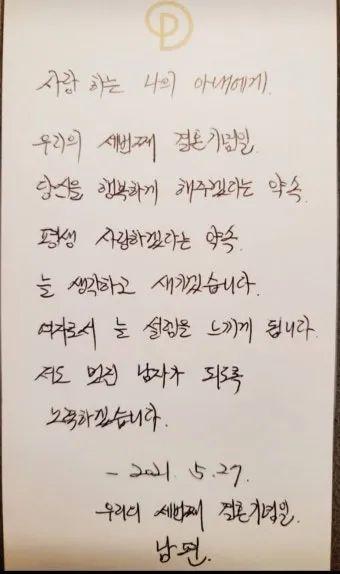 사랑 하는 나의 아내에게.
우리의 세번째 결혼기념일.
당신을 행복하게 해주겠다는 약속.
평생 사랑하겠다는 약속.
늘 생각하고 새기겠습니다.
여자로서 늘 설렘을 느끼게 됩니다.
저도 멋진 남자가 되도록
노력하겠습니다.
- 2021. 5. 27.
우리의 세번째 결혼기념일.
남편.